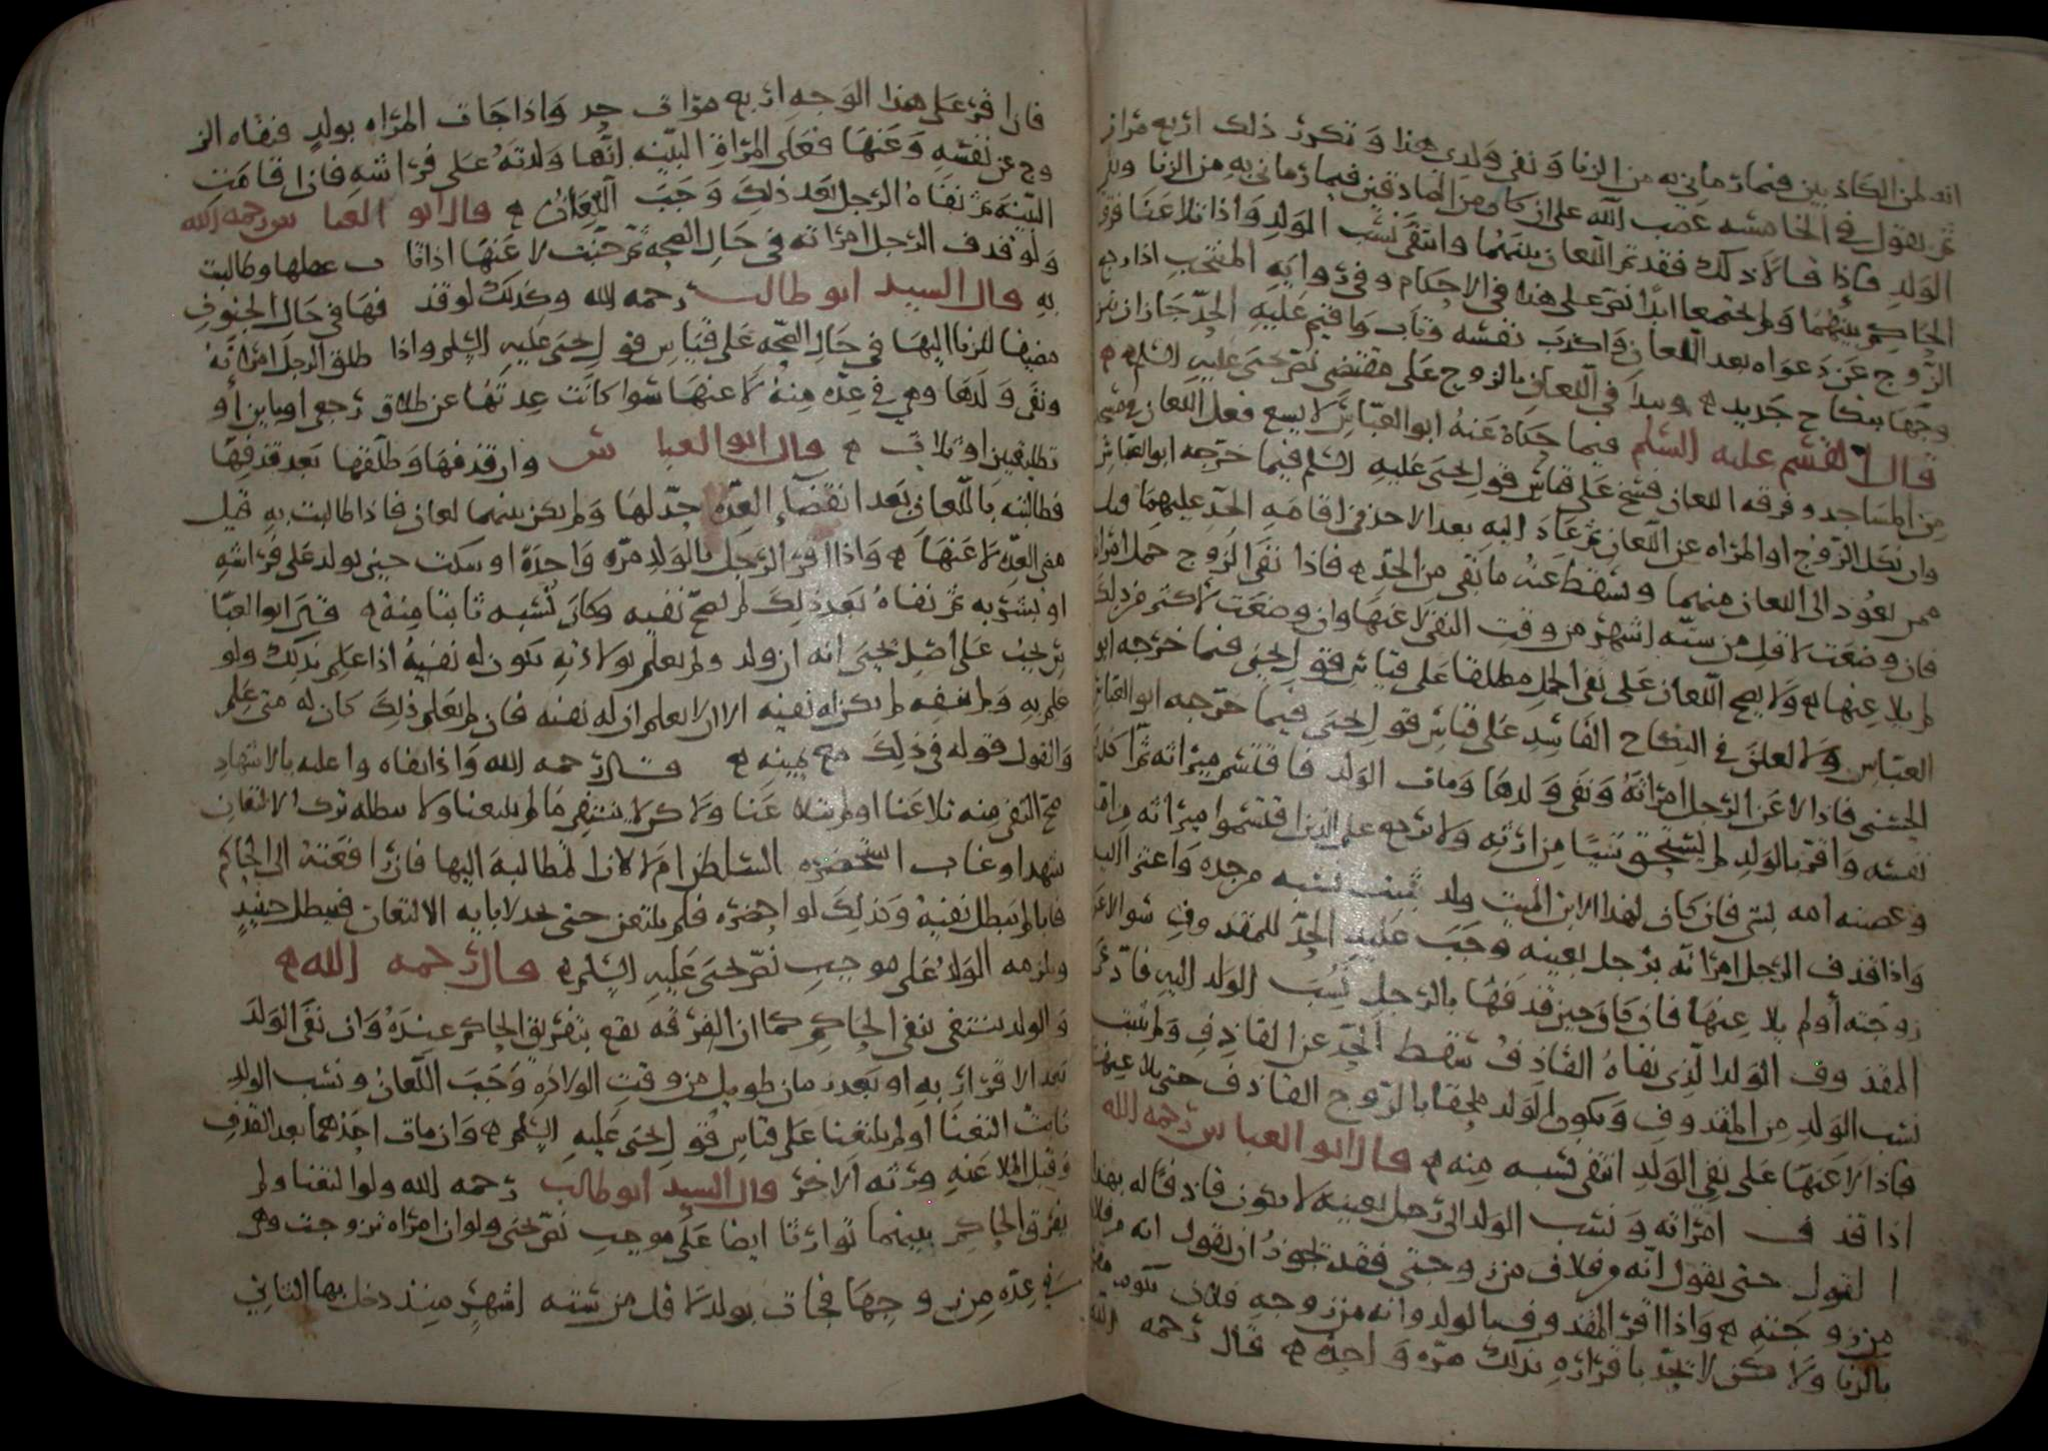 انه لمن الكاذبين فيما رماني به من الزنا ونفى ولدي هذا وتكرر ذلك اربع مرات
ثم يقول في الخامسه غضب الله على ان كان من الصادقين فيما رماني به من الزنا ونفي
الولد فاذا قالا ذلك فقد تم اللعان بينهما وانتفى نسب الولد واذا تلاعنا فرق
الحاكم بينهما ولم يجتمعا ابدا نص على هذا في الاحكام وفي رواية المنتخب اذا رجع
الزوج عن دعواه بعد اللعان واكذب نفسه وتاب واقيم عليه الحد جاز ان
وجها بنكاح جديد ويبدا في اللعان بالزوج على مقتضى نص يحيى عليه السلم
قال القسم عليه السلم فيما حكاه عنه ابو العباس لا يسع فعل اللعان في
من المساجد وفرقه اللعان فسخ على قياس قول يحيى عليه السلم فيما خرجه ابو العباس
وان نكل الزوج او المراه عن اللعان ثم عاد اليه بعد الاخذ في اقامه الحد عليهما
ممن يعود الى اللعان منهما وسقط عنه ما بقي من الحد فاذا نفى الزوج حمل امراته
فان وضعت لاقل من سته اشهر من وقت النفي لاعنها وان وضعت لاكثر من ذلك
لم يلاعنها ولا يصح اللعان على نفي الحمل مطلقا على قياس قول يحيى فيما خرجه ابو
العباس ولا لعان في النكاح الفاسد على قياس قول يحيى فيما خرجه ابو العباس
الحسني فاذا لاعن الرجل امراته ونفى ولدها ومات الولد فاقتسم ميراثه ثم اكذب
نفسه واقر بالولد لم يستحق شيئا من ارثه ولا يرجع على الذين اقتسموا ميراثه
وعصبه امه بشي فان كان لهذا الابن الميت ولد ثبت نسبه من جده
واذا قذف الرجل امراته برجل بعينه وجب عليه الحد للمقذوف سوا لاعن
زوجته أو لم يلاعنها فان كان حين قذفها بالرجل نسب الولد اليه فادعى
المقذوف الولد الذي نفاه القاذف سقط الحد عن القاذف ولم يثبت
نسب الولد من المقذوف ويكون الولد ملحقا بالزوج القاذف حتى يلاعنها
فاذا لاعنها على نفي الولد انتفى نسبه منه قال ابو العباس رحمه الله
اذا قذف امراته ونسب الولد الى رجل بعينه لا يكون قاذفا له بهذا
القول حتى يقول انه من فلان من زوجتي فقد يجوز ان يقول انه من فلان
من زوجته واذا اقر المقذوف بالولد وانه من زوجه فلان
بالزنا ولا كن لا يحد باقراره بذلك مره واحده قال رحمه الله
فان اقر على هذا الوجه اربع مرات حد واذا جات المراه بولد فنفاه الز
وج عن نفسه وعنها فعلى المراة البينه انها ولدته على فراشه فاذا اقامت
البينه ثم نفاه الرجل بعد ذلك وجب اللعان قال ابو العباس رحمه الله
ولو قذف الرجل امراته في حال الصحه ثم جنت لاعنها اذا ثاب عقلها وطالبت
به قال السيد ابو طالب رحمه الله وكذلك لو قذفها في حال الجنون
مضيفا للزنا اليها في حال الصحه على قياس قول يحيى عليه السلم واذا طلق الرجل امراته
ونفى ولدها وهي في عده منه لاعنها سوا كانت عدتها عن طلاق رجعي او باين أو
تطليقتين او ثلاث قال ابو العباس وان قذفها وطلقها بعد قذفها
فطالبته باللعان بعد انقضاء العده حد لها ولم يكن بينهما لعان فاذا طالبت به قبل
مضي العده لاعنها واذا اقر الرجل بالولد مره واحدة او سكت حين يولد على فراشه
او بشر به ثم نفاه بعد ذلك لم يصح نفيه وكان نسبه ثابتا منه قد ابو العبا
س يجب على اصل يحيى انه ان ولد ولم يعلم بولادته يكون له نفيه اذا علم بذلك ولو
علم به ولم ينفه لم يكن له نفيه الا ان لا يعلم ان له نفيه فان لم يعلم ذلك كان له متى علم
والقول قوله في ذلك مع يمينه قال رحمه الله واذا نفاه واعلمه بالاشهاد
صح النفي منه تلاعنا او لم يتلاعنا ولا كن لا ينتفي ما لم يلتعنا ولا يبطله ترك الالتعان
شهد او غاب استحضره السلطان ام لا لان المطالبة اليها فان رافعته الى الحاكم
فابا لم يبطل نفيه وكذلك لو احضره فلم يلتعن حتى يحد لابايه الالتعان فيبطل حينيذ
ويلزمه الولد على موجب نص يحيى عليه السلم قال رحمه الله
والولد ينتفي بنفي الحاكم كما ان الفرقه تقع بتفريق الحاكم عنده وان نفى الولد
بعد الاقرار به او بعد زمان طويل من وقت الولاده وجب اللعان ونسب الولد
ثابت التعنا أو لم يلتعنا على قياس قول يحيى عليه السلم وان مات احدهما بعد القذف
وقبل الملاعنه ورثه الاخر قال السيد ابو طالب رحمه الله ولو التعنا ولم
يفرق الحاكم بينهما توارثا ايضا على موجب نص يحيى ولو ان امراه تزوجت وهي
في عده من زوجها فجات بولد لاقل من سته اشهر منذ دخل بها الثاني